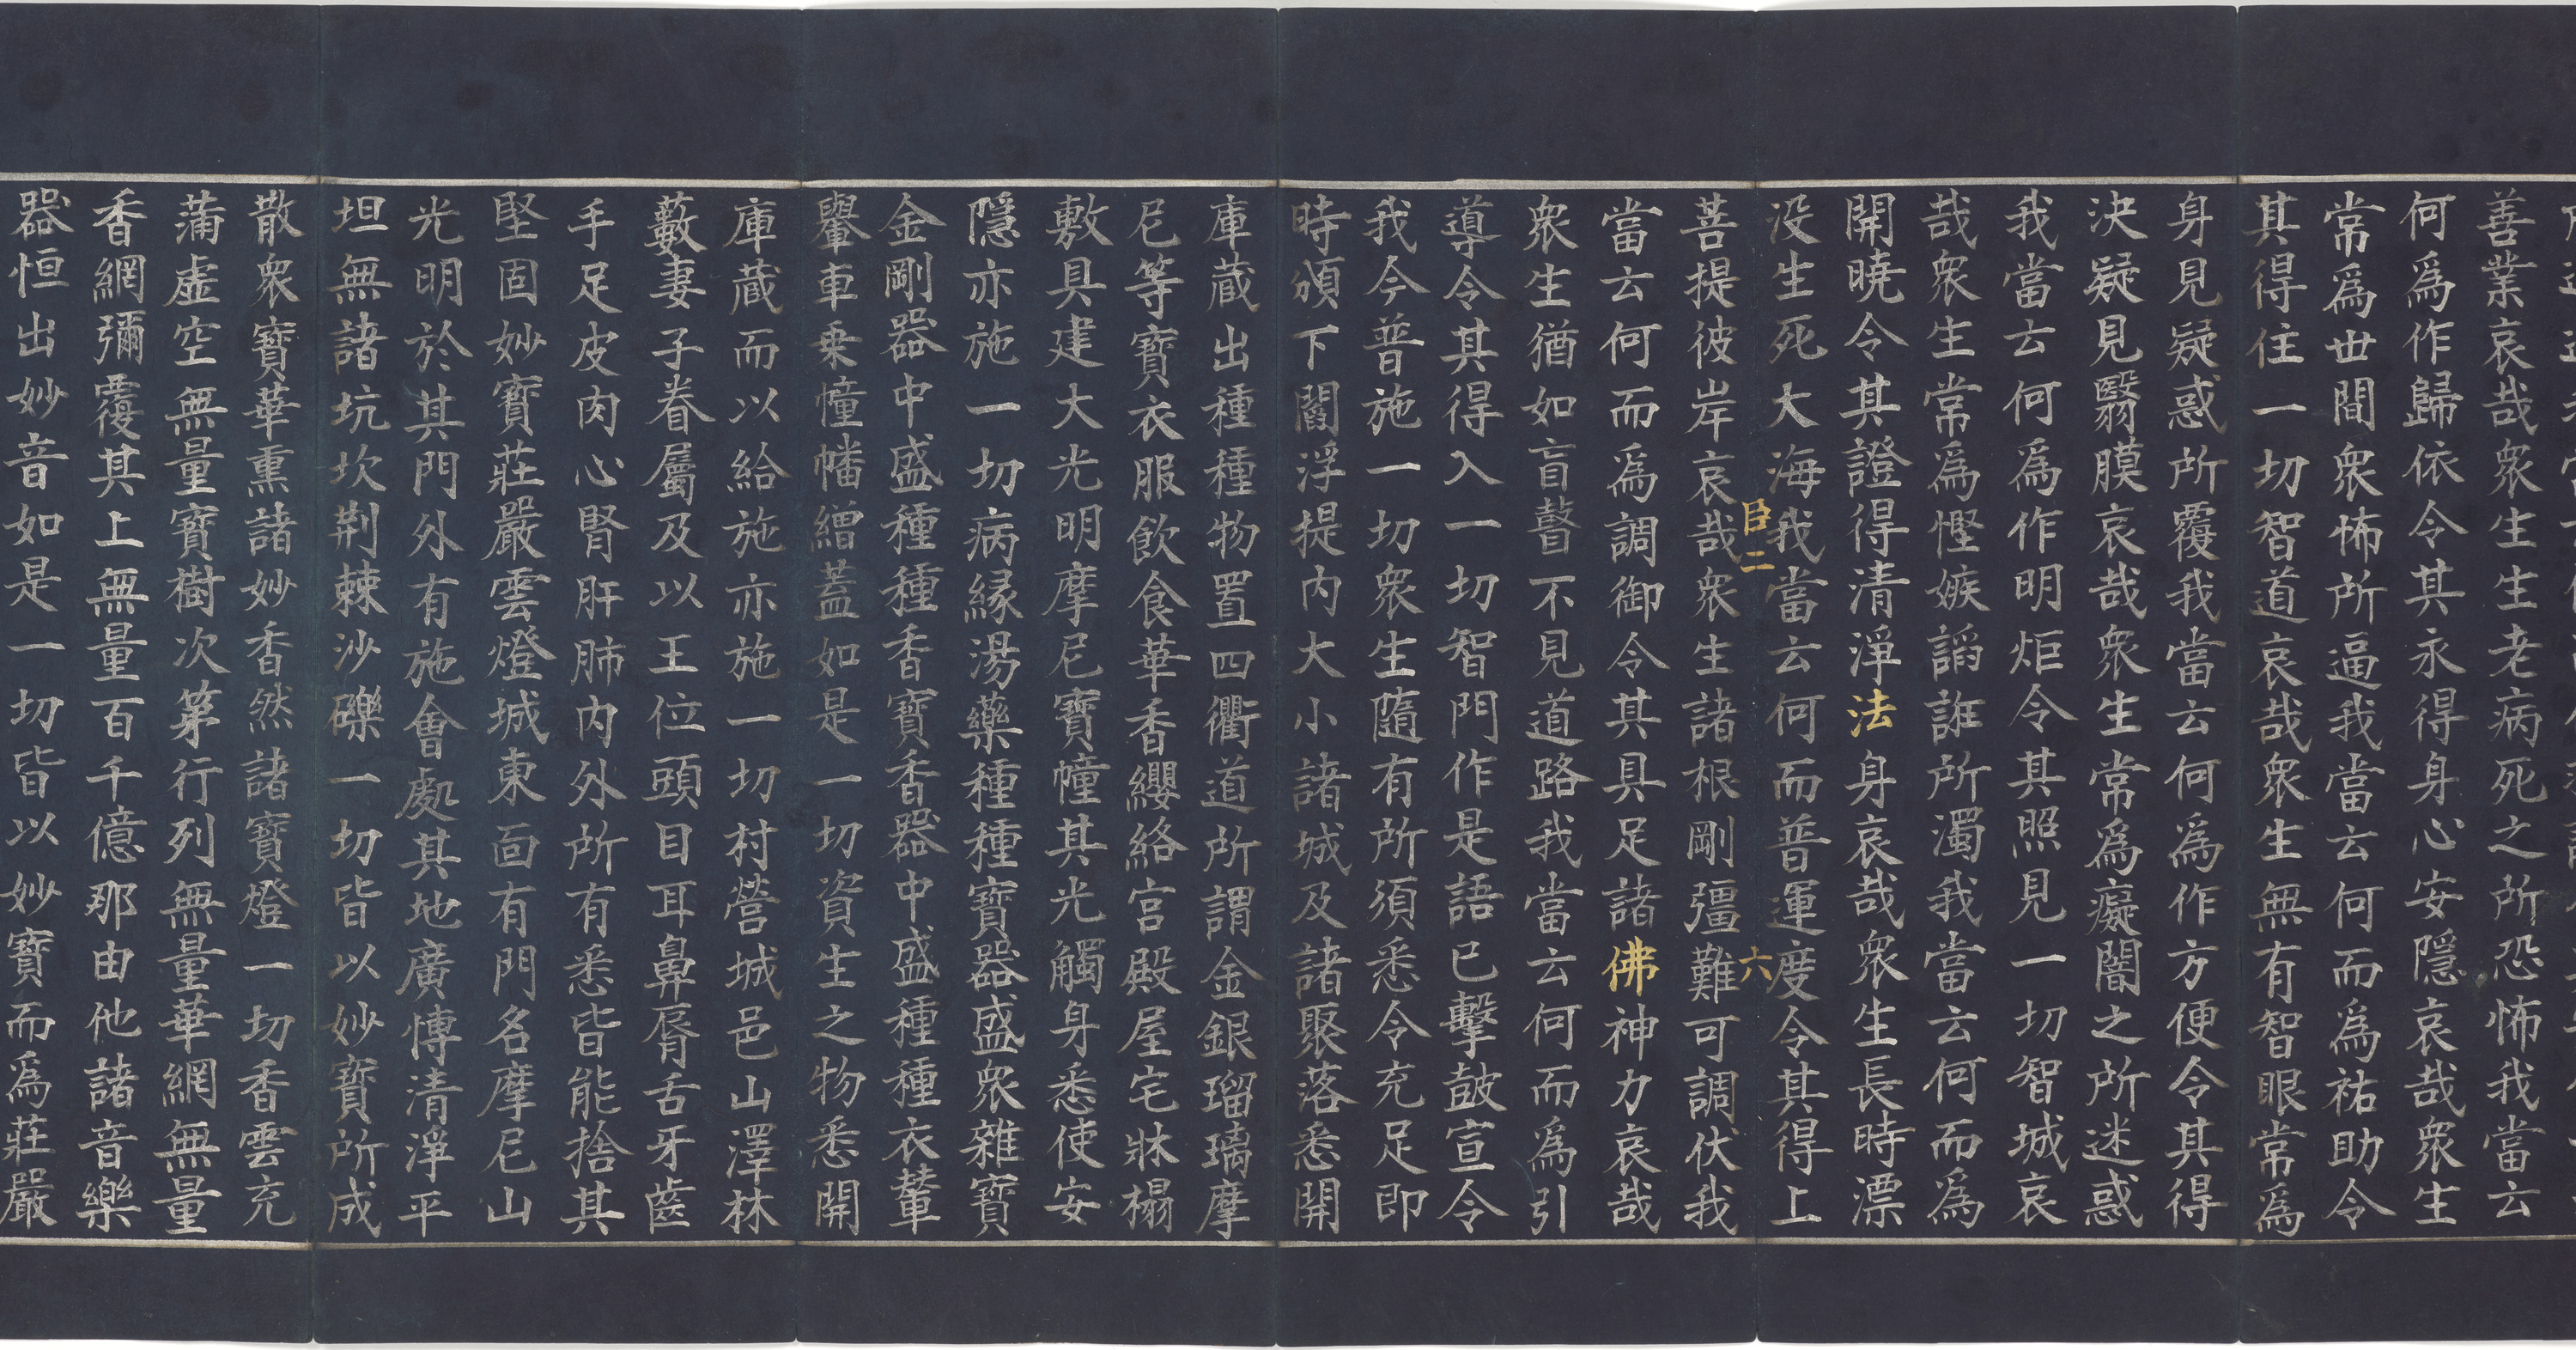 善業哀哉眾生生老病死之所恐怖我當云
何爲作歸依令其永得身心安隱哀哉眾生
常爲世間眾怖所逼我當云何而爲祐助令
其得住一切智道哀哉眾生無有智眼常爲
身見疑惑所覆我當云何爲作方便令其得
決疑見翳膜哀哉眾生常爲癡闇之所迷惑
我當云何爲作明炬令其照見一切智城哀
哉眾生常爲慳嫉諂誑所濁我當云何而爲
開曉令其證得清淨法身哀哉眾生長時漂
没生死大海我當云何而普運度令其得上
臣二 六
菩提彼岸哀哉眾生諸根剛彊難可調伏我
當云何而爲調御令其具足諸佛神力哀哉
眾生猶如盲瞽不見道路我當云何而爲引
導令其得入一切智門作是語已擊鼓宣令
我今普施一切眾生隨有所須悉令充足即
時頒下閻浮提內大小諸城及諸聚落悉開
庫蔵出種種物置四衢道所謂金銀瑠璃摩
尼等寶衣服飲食華香纓絡宮殿屋宅牀榻
敷具建大光明摩尼寶幢其光觸身悉使安
隱亦施一切病緣湯藥種種寶器盛眾雜寶
金剛器中盛種種香寶香器中盛種種衣輦
轝車乗幢幡繒蓋如是一切資生之物悉開
庫蔵而以給施亦施一切村營城邑山澤林
藪妻子眷屬及以王位頭目耳鼻脣舌牙齒
手足皮肉心腎肝肺内外所有悉皆能捨其
堅固妙寶莊嚴雲燈城東面有門名摩尼山
光明於其門外有施會處其地廣博清淨平
坦無諸坑坎荆棘沙礫一切皆以妙寶所成
散眾寶華熏諸妙香然諸寶燈一切香雲充
蒲虛空無量寶樹次第行列無量華網無量
香網彌覆其上無量百千億那由他諸音樂
器恒出妙音如是一切皆以妙寶而爲莊嚴